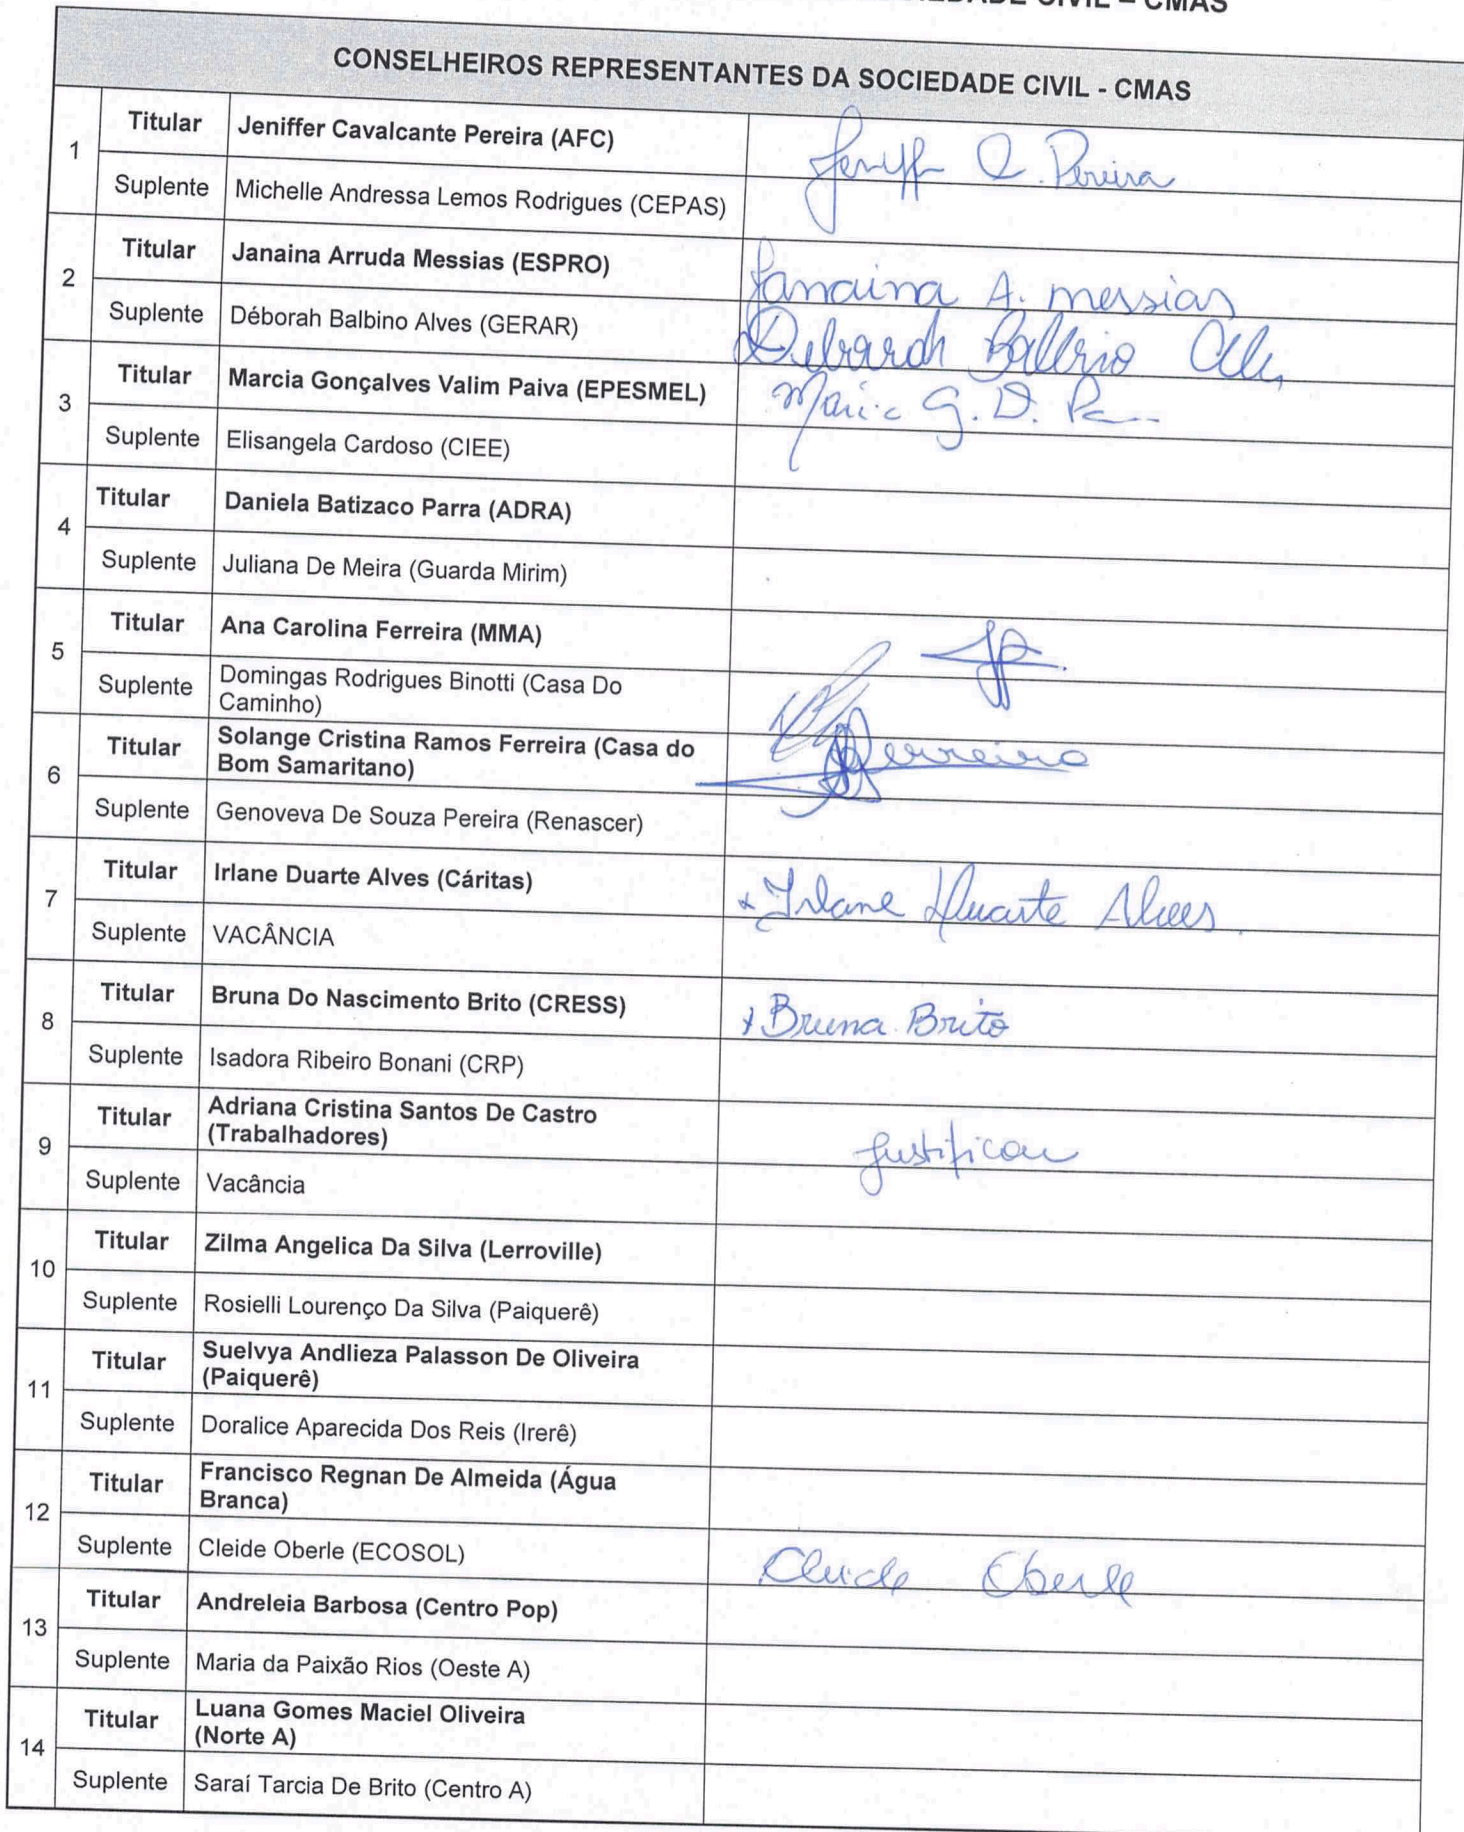 CIVIL – CMAS
CONSELHEIROS REPRESENTANTES DA SOCIEDADE CIVIL - CMAS
1
Titular Jeniffer Cavalcante Pereira (AFC) Pereira
Suplente Michelle Andressa Lemos Rodrigues (CEPAS)
2
Titular Janaina Arruda Messias (ESPRO) Janaina A. messias
Suplente Déborah Balbino Alves (GERAR)
3
Titular Marcia Gonçalves Valim Paiva (EPESMEL)
Suplente Elisangela Cardoso (CIEE)
4
Titular Daniela Batizaco Parra (ADRA)
Suplente Juliana De Meira (Guarda Mirim)
5
Titular Ana Carolina Ferreira (MMA)
Suplente Domingas Rodrigues Binotti (Casa Do
Caminho)
6
Titular Solange Cristina Ramos Ferreira (Casa do
Bom Samaritano)
Suplente Genoveva De Souza Pereira (Renascer)
7
Titular Irlane Duarte Alves (Cáritas) Irlane Duarte Alves
Suplente VACÂNCIA
8
Titular Bruna Do Nascimento Brito (CRESS) Bruna Brito
Suplente Isadora Ribeiro Bonani (CRP)
9
Titular Adriana Cristina Santos De Castro
(Trabalhadores) Justificou
Suplente Vacância
10
Titular Zilma Angelica Da Silva (Lerroville)
Suplente Rosielli Lourenço Da Silva (Paiquerê)
11
Titular Suelvya Andlieza Palasson De Oliveira
(Paiquerê)
Suplente Doralice Aparecida Dos Reis (Irerê)
12
Titular Francisco Regnan De Almeida (Água
Branca)
Suplente Cleide Oberle (ECOSOL) Cleide Oberle
13
Titular Andreleia Barbosa (Centro Pop)
Suplente Maria da Paixão Rios (Oeste A)
14
Titular Luana Gomes Maciel Oliveira
(Norte A)
Suplente Saraí Tarcia De Brito (Centro A)